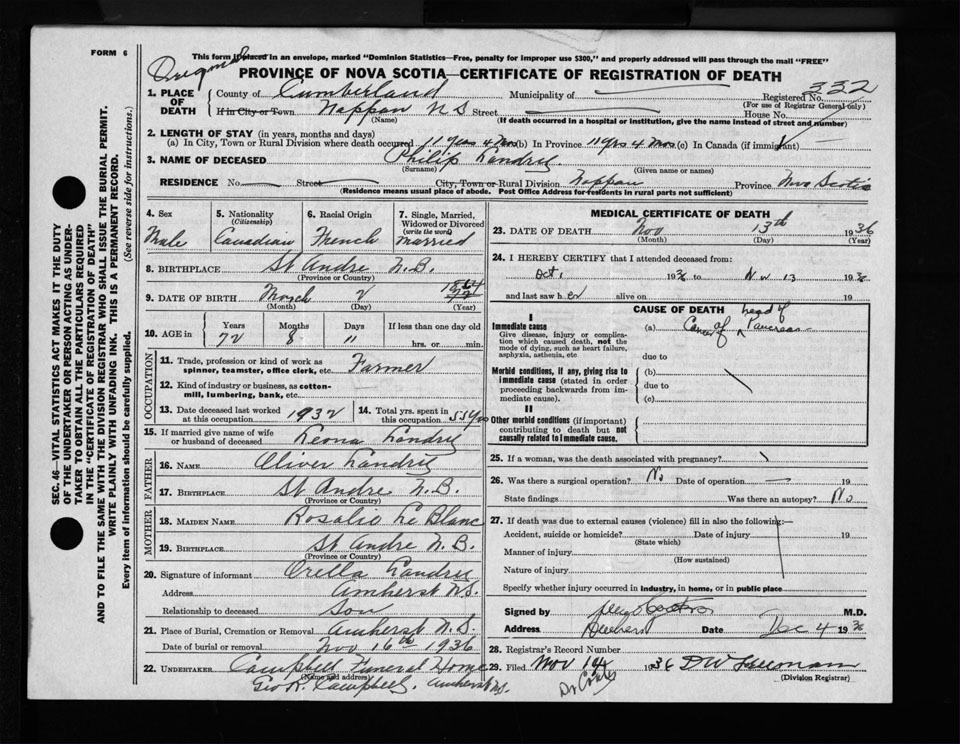 FORM 6
This form if placed in an envelope, marked "Dominion Statistics—Free, penalty for improper use $300," and properly addressed will pass through the mail "FREE"
Original
PROVINCE OF NOVA SCOTIA—CERTIFICATE OF REGISTRATION OF DEATH
1. PLACE OF DEATH
County of Cumberland Municipality of Registered No. 332
(For use of Registrar General only)
If in City or Town Nappan N S Street House No.
(Name) (If death occurred in a hospital or institution, give the name instead of street and number)
2. LENGTH OF STAY (in years, months and days)
(a) In City, Town or Rural Division where death occurred 11 yrs 4 Mos (b) In Province 11 yrs 4 Mos (c) In Canada (if immigrant)
3. NAME OF DECEASED Philip Landry
(Surname) (Given name or names)
RESIDENCE No. Street City, Town or Rural Division Nappan Province Nova Scotia
(Residence means usual place of abode. Post Office Address for residents in rural parts not sufficient)
SEC. 46—VITAL STATISTICS ACT MAKES IT THE DUTY
OF THE UNDERTAKER OR PERSON ACTING AS UNDER-
TAKER TO OBTAIN ALL THE PARTICULARS REQUIRED
IN THE "CERTIFICATE OF REGISTRATION OF DEATH"
AND TO FILE THE SAME WITH THE DIVISION REGISTRAR WHO SHALL ISSUE THE BURIAL PERMIT.
WRITE PLAINLY WITH UNFADING INK. THIS IS A PERMANENT RECORD.
Every item of information should be carefully supplied. (See reverse side for instructions.)
4. Sex Male
5. Nationality (Citizenship) Canadian
6. Racial Origin French
7. Single, Married, Widowed or Divorced (write the word) Married
8. BIRTHPLACE St Andre N.B.
(Province or Country)
9. DATE OF BIRTH March 2 1864
(Month) (Day) (Year)
10. AGE in Years 72 Months 8 Days 11 If less than one day old hrs. or min.
OCCUPATION
11. Trade, profession or kind of work as spinner, teamster, office clerk, etc. Farmer
12. Kind of industry or business, as cotton-mill, lumbering, bank, etc.
13. Date deceased last worked at this occupation 1932
14. Total yrs. spent in this occupation 55 yrs
15. If married give name of wife or husband of deceased Leona Landry
FATHER
16. NAME Oliver Landry
17. BIRTHPLACE St Andre N.B.
(Province or Country)
MOTHER
18. MAIDEN NAME Rosalie Le Blanc
19. BIRTHPLACE St Andre N.B.
(Province or Country)
20. Signature of informant Orella Landry
Address Amherst N.S.
Relationship to deceased Son
21. Place of Burial, Cremation or Removal Amherst N.S.
Date of burial or removal Nov 16th 1936
22. UNDERTAKER Campbell Funeral Home
(Name and address)
Geo R. Campbell, Amherst N.S.
MEDICAL CERTIFICATE OF DEATH
23. DATE OF DEATH Nov 13th 1936
(Month) (Day) (Year)
24. I HEREBY CERTIFY that I attended deceased from:
Oct 1 1936 to Nov 13 1936
and last saw h alive on 19
CAUSE OF DEATH
I
Immediate cause
Give disease, injury or complication which caused death, not the mode of dying, such as heart failure, asphyxia, asthenia, etc
(a) Cancer of head of Pancreas
due to
Morbid conditions, if any, giving rise to immediate cause (stated in order proceeding backwards from immediate cause).
(b)
due to
(c)
II
Other morbid conditions (if important) contributing to death but not causally related to immediate cause.
25. If a woman, was the death associated with pregnancy?
26. Was there a surgical operation? No Date of operation 19
State findings Was there an autopsy? No
27. If death was due to external causes (violence) fill in also the following:—
Accident, suicide or homicide? Date of injury 19
(State which)
Manner of injury
(How sustained)
Nature of injury
Specify whether injury occurred in industry, in home, or in public place
Signed by M.D.
Address Date Dec 4 1936
28. Registrar's Record Number
29. Filed Nov 1936
(Division Registrar)